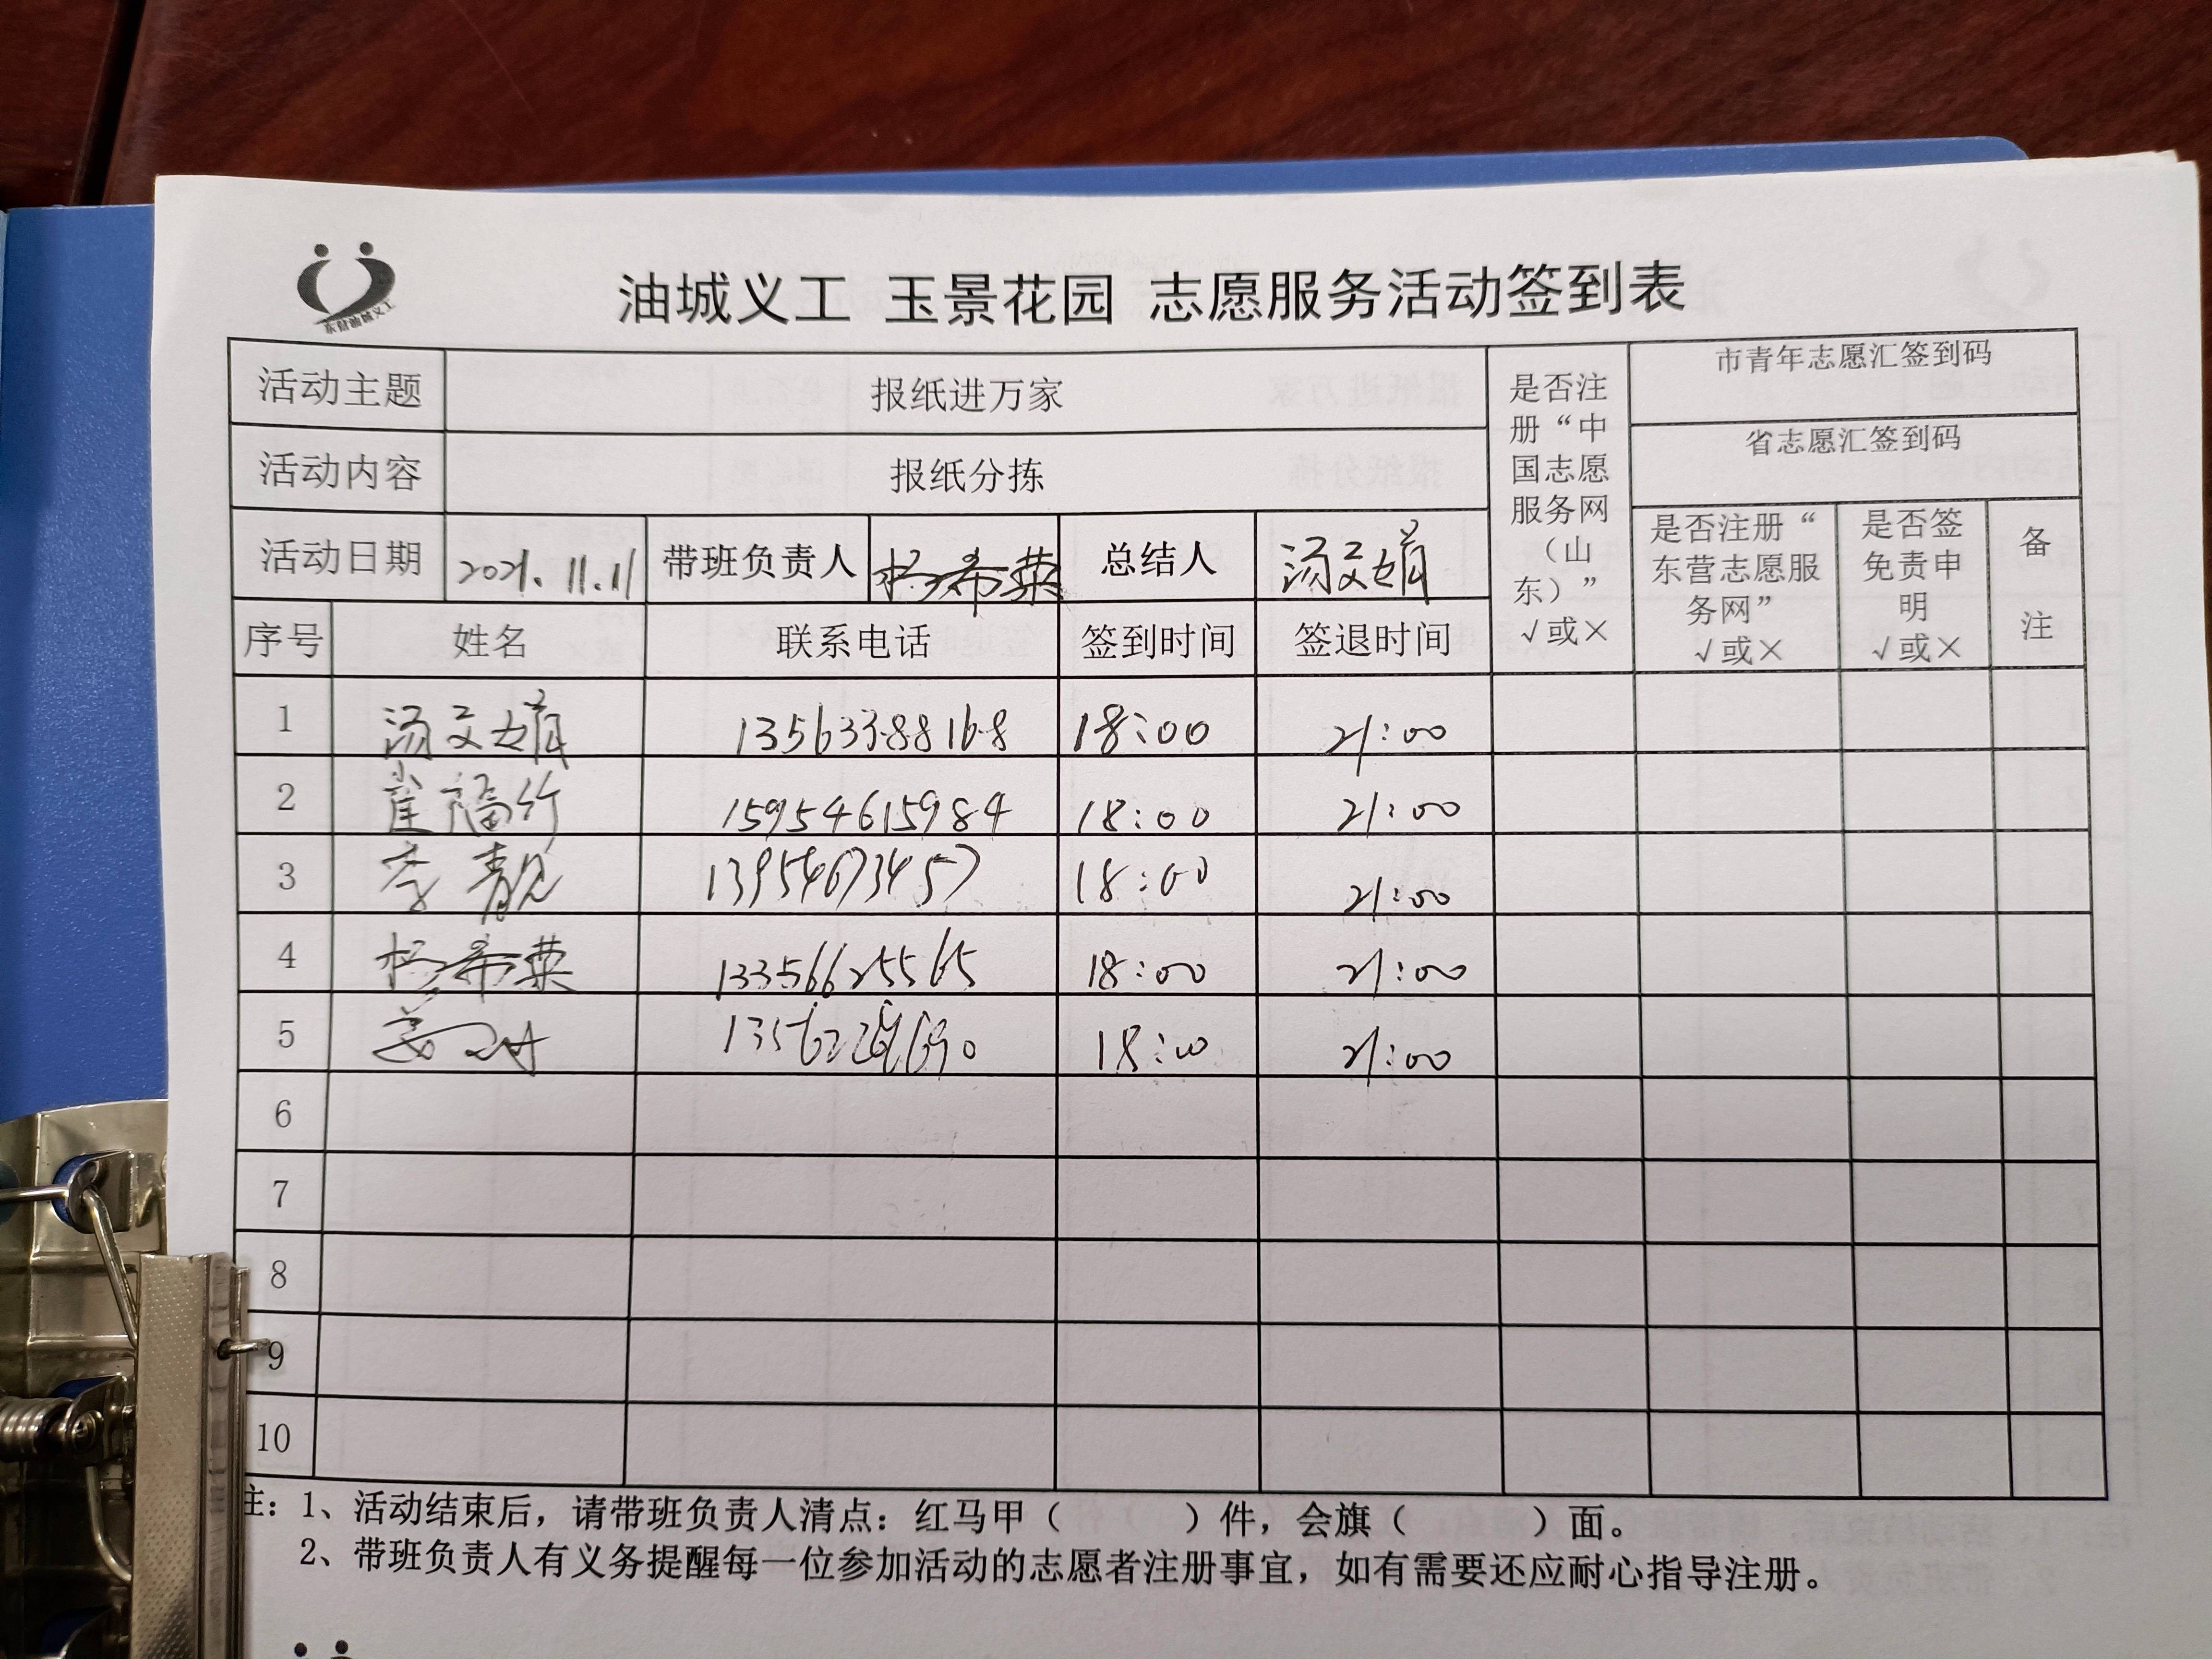 东营油城义工
油城义工 玉景花园 志愿服务活动签到表
活动主题 报纸进万家 是否注册“中国志愿服务网（山东）”√或× 市青年志愿汇签到码
活动内容 报纸分拣 省志愿汇签到码
活动日期 2021.11.11 带班负责人 杨希粪 总结人 汤文娟 是否注册“东营志愿服务网”√或× 是否签免责申明√或× 备注
序号 姓名 联系电话 签到时间 签退时间
1 汤文娟 13563388168 18:00 21:00
2 崔福竹 15954615984 18:00 21:00
3 李靓 13954673457 18:00 21:00
4 13356625565 18:00 21:00
5 18:00 21:00
6
7
8
9
10
注：1、活动结束后，请带班负责人清点：红马甲（ ）件，会旗（ ）面。
2、带班负责人有义务提醒每一位参加活动的志愿者注册事宜，如有需要还应耐心指导注册。